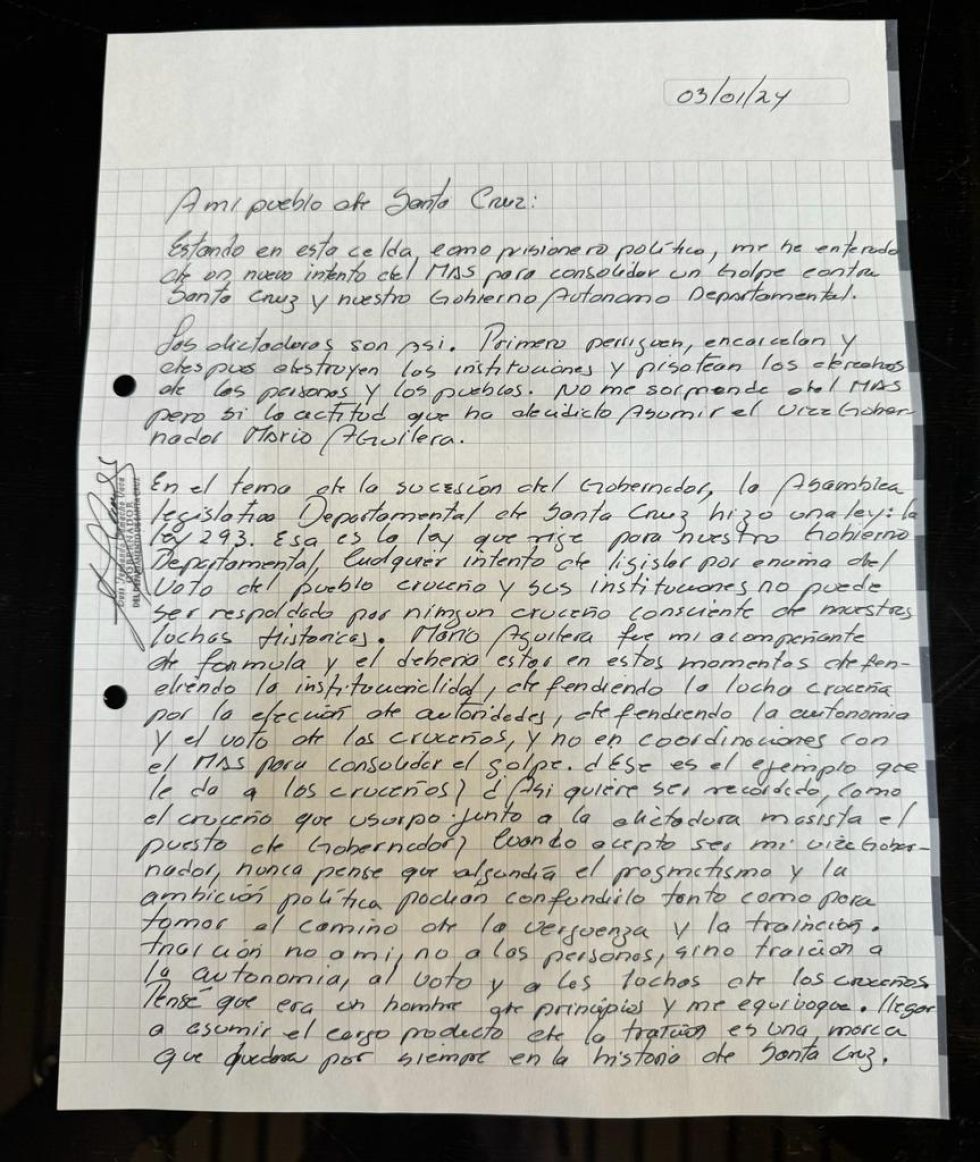 03/01/24
A mi pueblo de Santa Cruz:
Estando en esta celda, como prisionero político, me he enterado
de un nuevo intento del MAS para consolidar un Golpe contra
Santa Cruz y nuestro Gobierno Autonomo Departamental.
Los dictadores son asi. Primero persiguen, encarcelan y
despues destruyen las instituciones y pisotean los derechos
de las personas y los pueblos. No me sorprende del MAS
pero si la actitud que ha decidido Asumir el vice Gober-
nador Mario Aguilera.
En el tema de la sucesión del Gobernador, la Asamblea
legislativa Departamental de Santa Cruz hizo una ley: la
ley 293. Esa es la ley que rige para nuestro Gobierno
Departamental, Cualquier intento de ligislar por encima del
Voto del pueblo cruceño y sus instituciones no puede
ser respaldado por ningun cruceño consciente de nuestras
luchas Historicas. Mario Aguilera fue mi acompañante
de formula y el deberia estar en estos momentos defen-
diendo la institucionalidad, defendiendo la lucha cruceña
por la elección de autoridades, defendiendo la autonomia
y el voto de los cruceños, y no en coordinaciones con
el MAS para consolidar el golpe. ¿Ese es el ejemplo que
le da a los cruceños? ¿Asi quiere ser recordado, como
el cruceño que usurpo junto a la dictadura masista el
puesto de Gobernador? Cuando acepto ser mi vice Gober-
nador, nunca pense que algundia el pragmatismo y la
ambición politica podian confundirlo tanto como para
tomar el camino de la verguenza y la traición.
traición no a mi, no a las personas, sino traicion a
la autonomia, al voto y a las luchas de los cruceños.
Pensé que era un hombre de principios y me equivoque. llegar
a asumir el cargo producto de la traición es una marca
que quedara por siempre en la historia de Santa Cruz.
Luis Fernando Camacho Vaca
GOBERNADOR